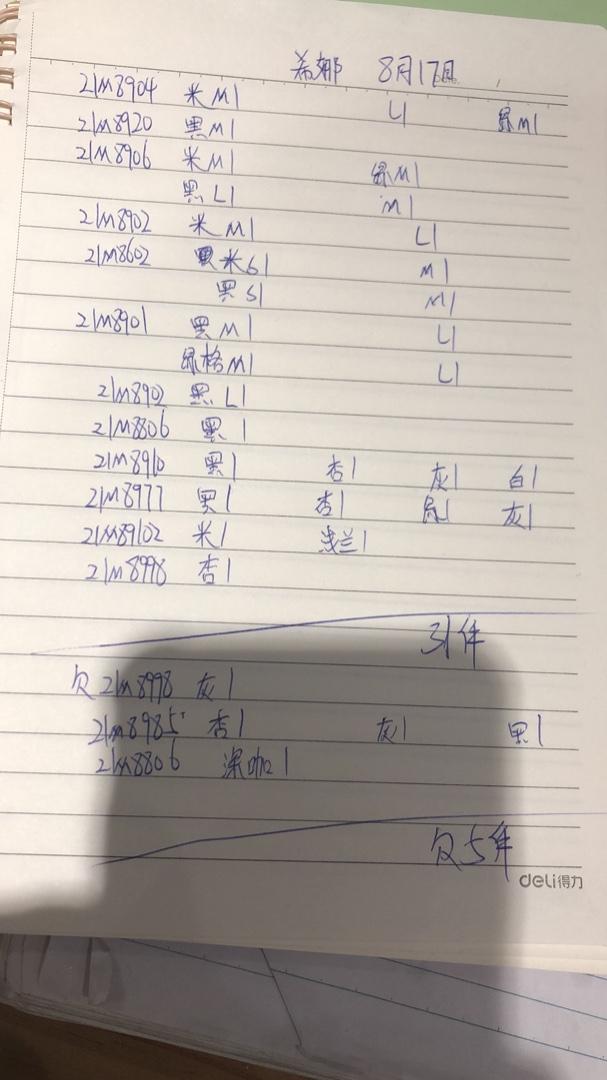 希娜 8月17日
21M8904 米M1 L1 绿M1
21M8920 黑M1
21M8906 米M1 绿M1
黑L1 M1
21M8902 米M1 L1
21M8602 米S1 M1
黑S1 M1
21M8901 黑M1 L1
绿格M1 L1
21M8902 黑L1
21M8806 黑1
21M8910 黑1 杏1 灰1 白1
21M8977 黑1 杏1 绿1 灰1
21M89102 米1 浅兰1
21M8998 杏1
31件
欠21M8998 灰1
21M8985 杏1 灰1 黑1
21M8806 深咖1
欠5件
deli得力